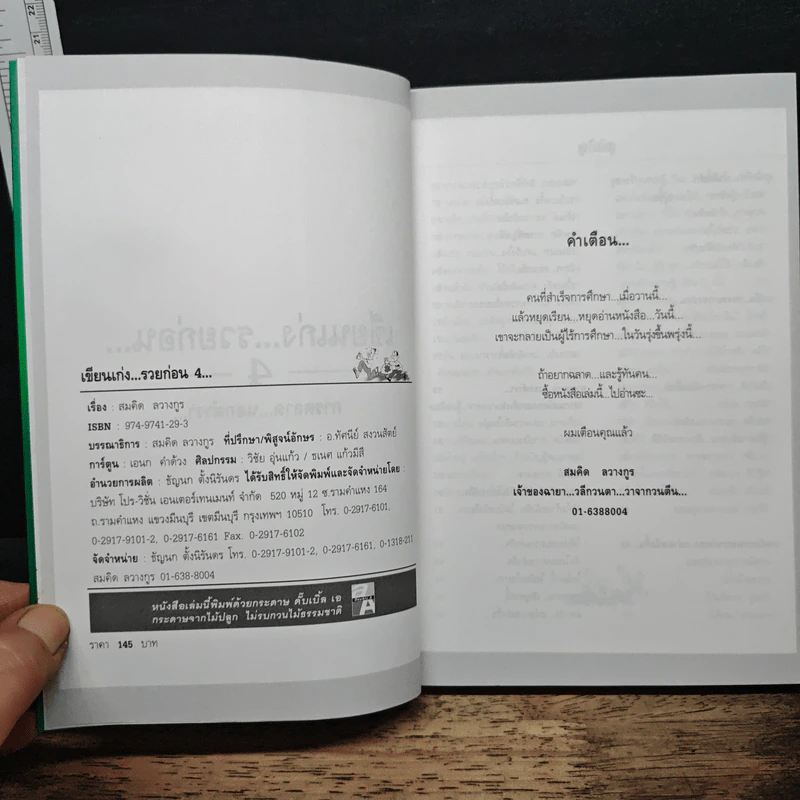 เขียนเก่ง...รวยก่อน 4...
เรื่อง : สมคิด ลวางกูร
ISBN : 974-9741-29-3
บรรณาธิการ : สมคิด ลวางกูร ที่ปรึกษา/พิสูจน์อักษร : อ.ทัศนีย์ สงวนสัตย์
การ์ตูน : เอนก คำด้วง ศิลปกรรม : วิชัย อุ่นแก้ว / ชเนศ แก้วมีสี
อำนวยการผลิต : ธัญนก ตั้งนิรันดร ได้รับสิทธิ์ให้จัดพิมพ์และจัดจำหน่ายโดย :
บริษัท โปร-วิชั่น เอนเตอร์เทนเมนท์ จำกัด 520 หมู่ 12 ซ.รามคำแหง 164
ถ.รามคำแหง แขวงมีนบุรี เขตมีนบุรี กรุงเทพฯ 10510 โทร. 0-2917-6101,
0-2917-9101-2, 0-2917-6161 Fax. 0-2917-6102
จัดจำหน่าย : ธัญนก ตั้งนิรันดร โทร. 0-2917-9101-2, 0-2917-6161, 0-1318-211
สมคิด ลวางกูร 01-638-8004
หนังสือเล่มนี้พิมพ์ด้วยกระดาษ ดั๊บเบิ้ล เอ
กระดาษจากไม้ปลูก ไม่รบกวนไม้ธรรมชาติ
ราคา 145 บาท
คำเตือน...
คนที่สำเร็จการศึกษา...เมื่อวานนี้...
แล้วหยุดเรียน...หยุดอ่านหนังสือ...วันนี้...
เขาจะกลายเป็นผู้ไร้การศึกษา...ในวันรุ่งขึ้นพรุ่งนี้...
ถ้าอยากฉลาด...และรู้ทันคน...
ซื้อหนังสือเล่มนี้...ไปอ่านซะ...
ผมเตือนคุณแล้ว
สมคิด ลวางกูร
เจ้าของฉายา...วลีกวนตา...วาจากวนตีน...
01-6388004
21
22